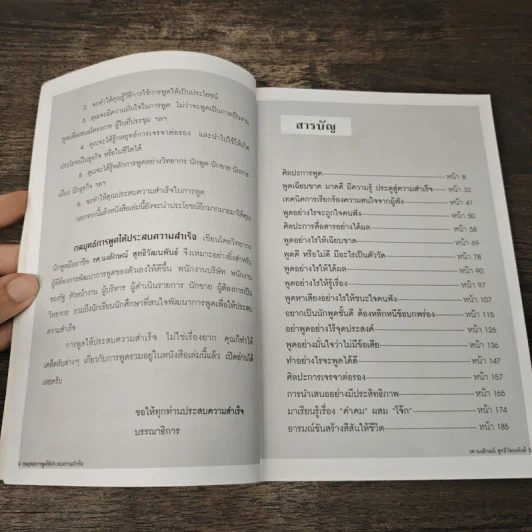 2. จะทำให้คุณรู้วิธีการใช้การพูดให้เป็นประโยชน์
3. คุณจะมีความมั่นใจในการพูด ไม่ว่าจะพูดเป็นการเป็นงาน
พูดเพื่อเสนอโครงการ ผู้ในที่ประชุม ฯลฯ
4. คุณจะได้รู้กลยุทธ์การเจรจาต่อรอง และนำไปใช้ให้เกิด
ประโยชน์ในธุรกิจ หรือในชีวิตได้
5. คุณจะได้รู้หลักการพูดอย่างวิทยากร นักพูด นักขาย นักการ
เมือง นักธุรกิจ ฯลฯ
6. จะทำให้คุณประสบความสำเร็จในการพูด
นอกจากนั้นแล้วหนังสือเล่มนี้ยังจะนำประโยชน์อีกมากมายมาให้คุณ
กลยุทธ์การพูดให้ประสบความสำเร็จ เขียนโดยวิทยากร
นักพูดมืออาชีพ รศ.นงลักษณ์ สุทธิวัฒนพันธ์ จึงเหมาะอย่างยิ่งสำหรับ
ผู้ที่ต้องการพัฒนาการพูดของตัวเองให้ดีขึ้น พนักงานบริษัท พนักงาน
ของรัฐ หัวหน้างาน ผู้บริหาร ผู้ดำเนินรายการ นักขาย ผู้ต้องการเป็น
วิทยากร รวมถึงนักเรียนนักศึกษาที่สนใจพัฒนาการพูดเพื่อให้ประสบ
ความสำเร็จ
การพูดให้ประสบความสำเร็จ ไม่ใช่เรื่องยาก คุณก็ทำได้
เคล็ดลับต่างๆ เกี่ยวกับการพูดรวมอยู่ในหนังสือเล่มนี้แล้ว เปิดอ่านได้
เลยครับ
ขอให้ทุกท่านประสบความสำเร็จ
บรรณาธิการ
4 กลยุทธ์การพูดให้ประสบความสำเร็จ
สารบัญ
ศิลปะการพูด หน้า 8
พูดเฉียบขาด มาดดี มีความรู้ ประตูสู่ความสำเร็จ หน้า 32
เทคนิคการเรียกร้องความสนใจจากผู้ฟัง หน้า 41
พูดอย่างไรจะถูกใจคนฟัง หน้า 50
ศิลปะการสื่อสารอย่างได้ผล หน้า 58
พูดอย่างไรให้เฉียบขาด หน้า 69
พูดดี หรือไม่ดี มีอะไรเป็นตัววัด หน้า 78
พูดอย่างไรให้ได้ผล หน้า 90
พูดอย่างไรให้รู้เรื่อง หน้า 97
พูดหาเสียงอย่างไรให้ชนะใจคนฟัง หน้า 107
อยากเป็นนักพูดชั้นดี ต้องหลีกหนีข้อบกพร่อง หน้า 115
อย่าพูดอย่างไร้จุดประสงค์ หน้า 126
พูดอย่างมั่นใจว่าไม่มีข้อเสีย หน้า 136
ทำอย่างไรจะพูดได้ดี หน้า 147
ศิลปะการเจรจาต่อรอง หน้า 157
การนำเสนออย่างมีประสิทธิภาพ หน้า 165
มาเรียนรู้เรื่อง "คำคม" ผสม "โจ๊ก" หน้า 174
อารมณ์ขันสร้างสีสันให้ชีวิต หน้า 185
รศ.นงลักษณ์ สุทธิวัฒนพันธ์ 5